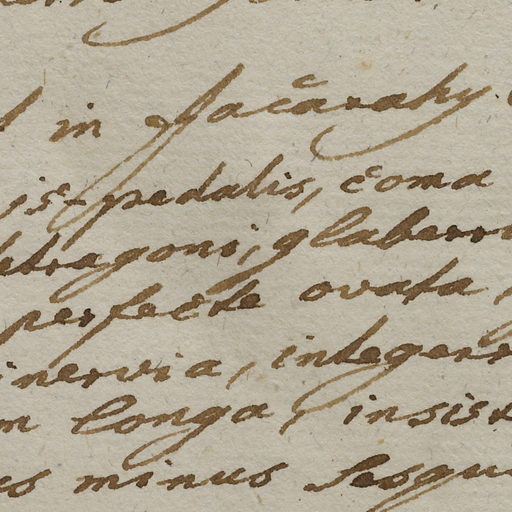 in Jacarahy.
is-pedalis, coma
tetragoni, glaberr
perfecte ovata,
inervia, integerr
m longa, insist
us minus sesqui